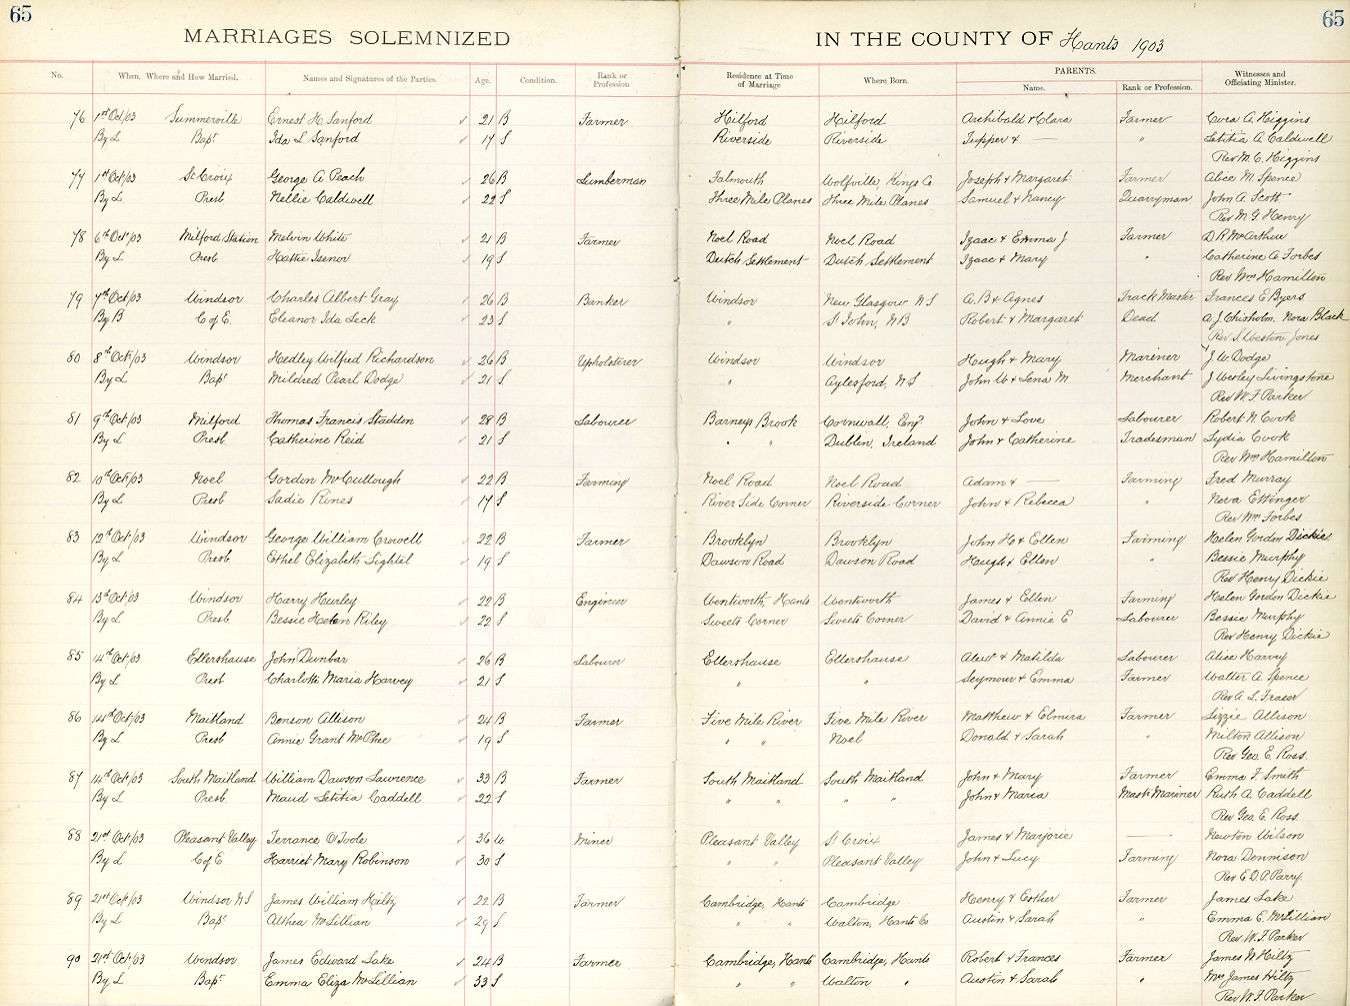 65 65
MARRIAGES SOLEMNIZED IN THE COUNTY OF Hants 1903
No. When, Where and How Married. Names and Signatures of the Parties. Age. Condition. Rank or Profession Residence at Time of Marriage Where Born. PARENTS. Name. Rank or Profession. Witnesses and Officiating Minister.
76 1st Oct/03 Summerville Ernest H. Sanford 21 B Farmer Hilford Hilford Archibald & Clara Farmer Cora A. Higgins
By L Bapt Ida L. Sanford 17 S Riverside Riverside Tupper & — " Letitia A. Caldwell
Rev M. C. Higgins
77 1st Oct/03 St Croix George A. Peach 26 B Lumberman Falmouth Wolfville, Kings Co Joseph & Margaret Farmer Alice M. Spence
By L Presb Nellie Caldwell 22 S Three Mile Planes Three Mile Planes Samuel & Nancy Quarryman John A. Scott
Rev M G Henry
78 6th Oct/03 Milford Station Melvin White 21 B Farmer Noel Road Noel Road Izaac & Emma J Farmer D R. McArthur
By L Presb Hattie Isenor 19 S Dutch Settlement Dutch Settlement Izaac & Mary " Catherine A. Forbes
Rev Wm Hamilton
79 7th Oct/03 Windsor Charles Albert Gray 26 B Banker Windsor New Glasgow N S A. B & Agnes Track Master Frances E Byers
By B C of E. Eleanor Ida Leck 23 S " St John, N B Robert & Margaret Dead A J Chisholm, Nora Black
Rev S. Weston Jones
80 8th Oct/03 Windsor Hedley Wilfred Richardson 26 B Upholsterer Windsor Windsor Hugh & Mary Mariner J. W. Dodge
By L Bapt Mildred Pearl Dodge 21 S " Aylesford, N S John W & Lena M Merchant J Wesley Livingstone
Rev W. F Parker
81 9th Oct/03 Milford Thomas Francis Staddon 28 B Labourer Barneys Brook Cornwall, Eng. John & Love Labourer Robert N. Cook
By L Presb. Catherine Reid 21 S " " Dublin, Ireland John & Catherine Tradesman Lydia Cook
Rev Wm Hamilton
82 10th Oct/03 Noel Gordon McCullough 22 B Farming Noel Road Noel Road Adam & — Farming Fred Murray
By L Presb Sadie Rines 17 S River Side Corner Riverside Corner John & Rebecca " Nova Ettinger
Rev Wm Forbes
83 12th Oct/03 Windsor George William Crowell 22 B Farmer Brooklyn Brooklyn John H & Ellen Farming Helen Gordon Dickie
By L Presb Ethel Elizabeth Lightel 19 S Dawson Road Dawson Road Hugh & Ellen " Bessie Murphy
Rev Henry Dickie
84 13th Oct/03 Windsor Harry Hurley 22 B Engineer Wentworth, Hants Wentworth James & Ellen Farming Helen Gordon Dickie
By L Presb Bessie Helen Riley 22 S Sweets Corner Sweets Corner David & Annie E Labourer Bessie Murphy
Rev Henry Dickie
85 14th Oct/03 Ellershause John Dunbar 26 B Labourer Ellershause Ellershause Alexr & Matilda Labourer Alice Harvey
By L Presb Charlotte Maria Harvey 21 S " " Seymour & Emma Farmer Walter A. Spence
Rev A. L. Fraser
86 14th Oct/03 Maitland Benson Allison 24 B Farmer Five Mile River Five Mile River Matthew & Elmira Farmer Lizzie Allison
By L Presb Annie Grant McPhee 19 S " " Noel Donald & Sarah " Milton Allison
Rev Geo. E. Ross.
87 14th Oct/03 South Maitland William Dawson Lawrence 33 B Farmer South Maitland South Maitland John & Mary Farmer Emma F. Smith
By L Presb. Maud Letitia Caddell 22 S " " " " John & Maria Mast. Mariner Ruth A. Caddell
Rev Geo. E. Ross
88 21st Oct/03 Pleasant Valley Terrance O'Toole 36 W Miner Pleasant Valley St Croix James & Marjorie — Newton Wilson
By L C of E Harriet Mary Robinson 30 S " " Pleasant Valley John & Lucy Farming Nora Dennison
Rev E. D. P. Parry.
89 21st Oct/03 Windsor N S James William Hiltz 22 B Farmer Cambridge, Hants Cambridge Henry & Esther Farmer James Lake
By L Bapt Althea McLillian 29 S " " Walton, Hants Co Austin & Sarah " Emma E. McLillian
Rev. W. F. Parker
90 21st Oct/03 Windsor James Edward Lake 24 B Farmer Cambridge, Hants Cambridge, Hants Robert & Frances Farmer James W Hiltz
By L Bapt Emma Eliza McLillian 33 S " " Walton " Austin & Sarah " Mrs James Hiltz
Rev W. F. Parker